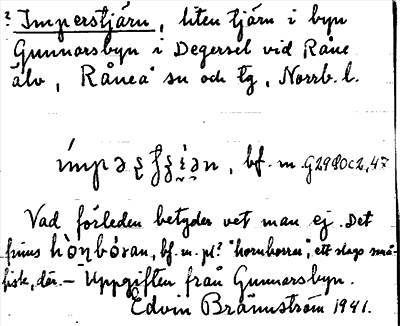 ? Imperstjärn, liten tjärn i byn
Gunnarsbyn i Degersel vid Råne
älv, Råneå sn och tg, Norrb. l.
bf. m.
Vad förleden betyder vet man ej. Det
finns bf. m. pl? "hornborrar", ett slags små-
fisk, där. – Uppgiften från Gunnarsbyn.
Edvin Brännström 1941.